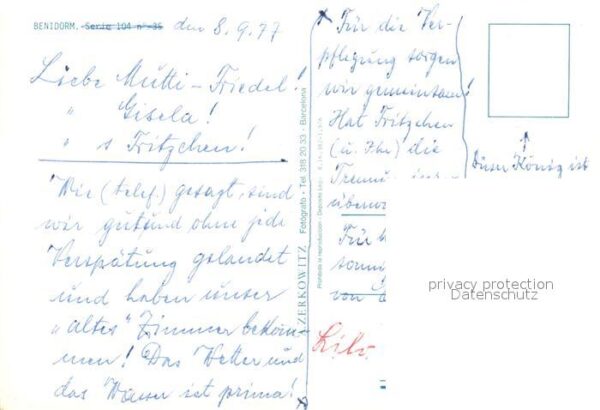 BENIDORM. Serie 104 nº 35 den 8.9.77
Liebe Mutti - Friedel!
" Gisela!
" s Fritzchen!
Wie (telef.) gesagt, sind
wir gut und ohne jede
Verspätung gelandet
und haben unser
"altes" Zimmer bekom-
men! Das Wetter und
das Wasser ist prima!
ZERKOWITZ Fotógrafo - Tel. 318 20 33 - Barcelona
Für die Ver-
pflegung sorgen
wir gemeinsam!
Hat Fritzchen
(u. Ihr) die
Für
von
Dieser König ist
privacy protection
Datenschutz